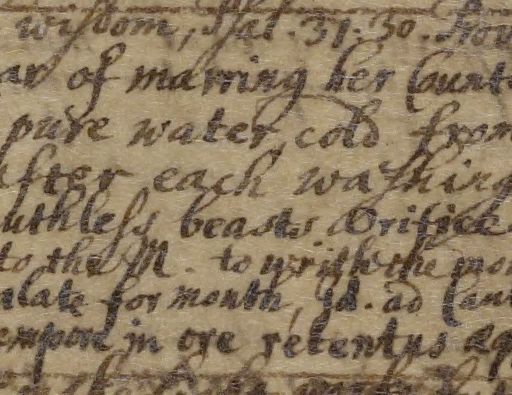 wisdom, Psal. 37. 30. Prov
ar of marring her Count
pure water cold from
after each washing
uthless beasts Orifice
to the M. to writh the mo
alate for mouth, Id. ad Cant
empore in ore retentus aq